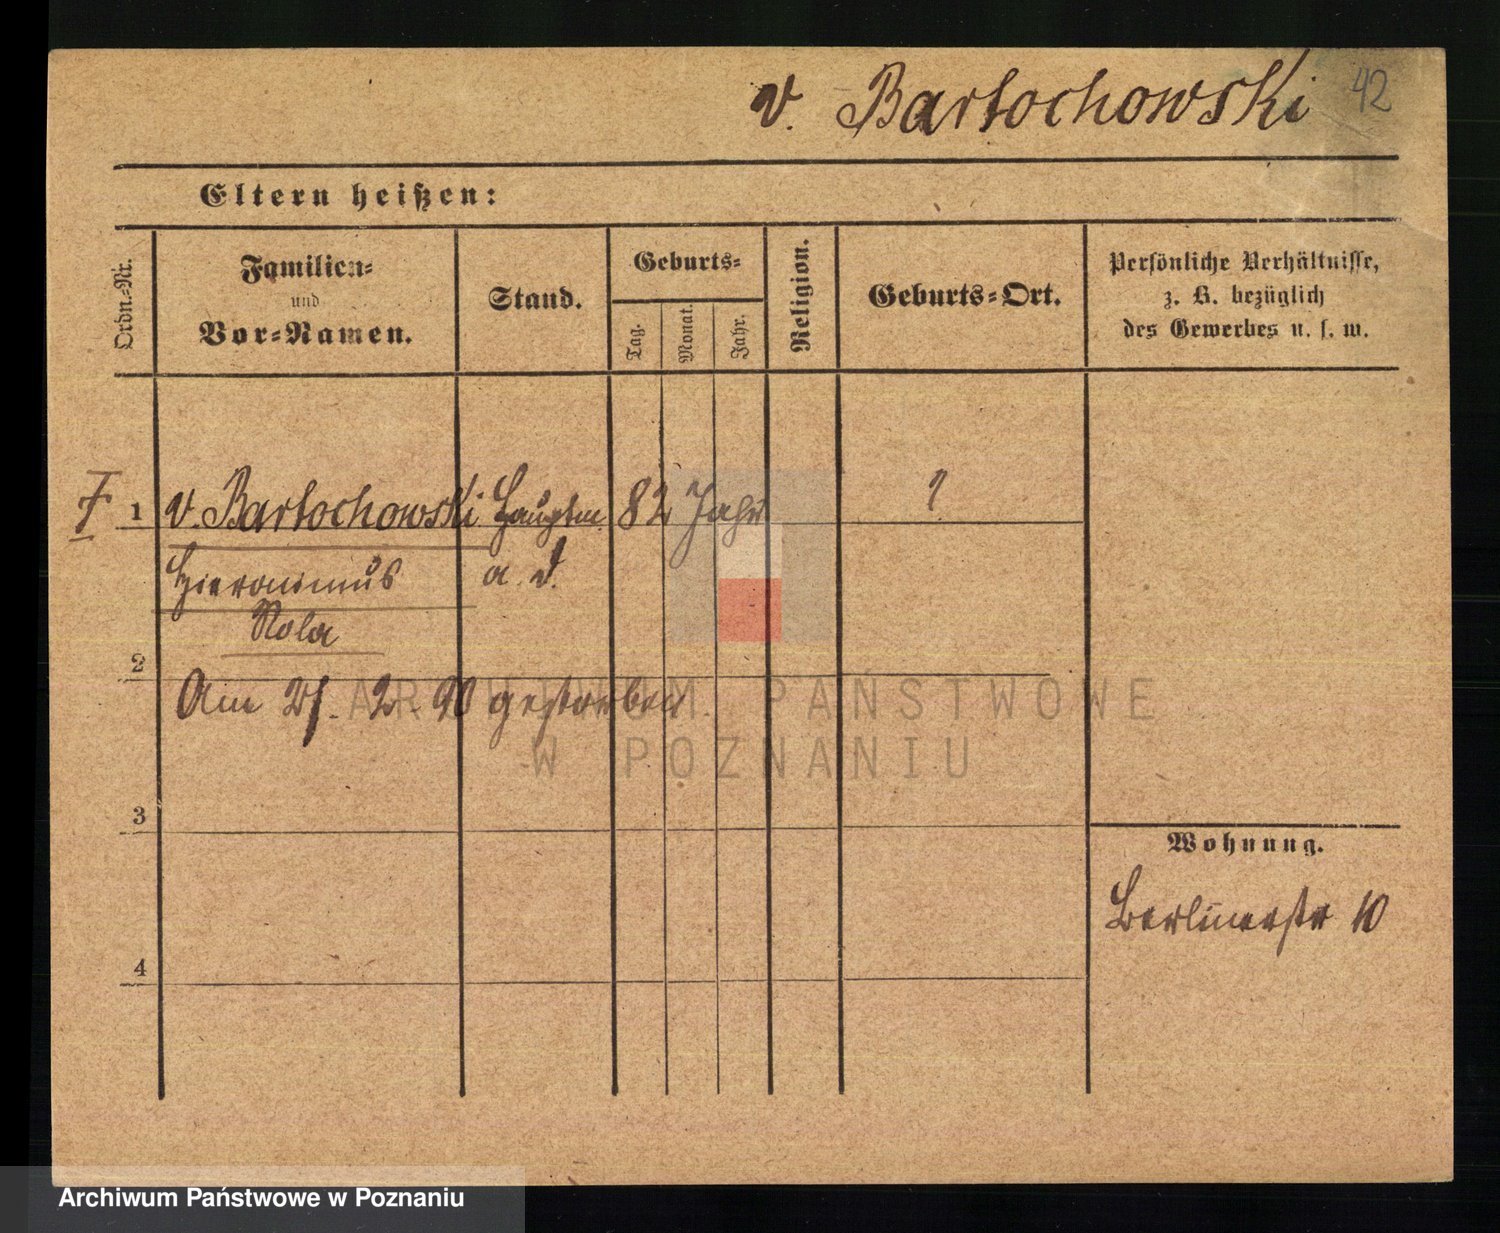 v. Bartochowski 42
Eltern heißen:
Ordn.-Nr.
Familien-
und
Vor-Namen.
Stand.
Geburts-
Tag.
Monat.
Jahr.
Religion.
Geburts-Ort.
Persönliche Verhältnisse,
z. B. bezüglich
des Gewerbes u. s. w.
1 v. Bartochowski Hauptm. 82 Jahr ?
Hieronimus a. d.
Rola
2
Am 21. 2. 90 gestorben.
ARCHIWUM PAŃSTWOWE
W POZNANIU
3
Wohnung.
Berlinerstr 10
4
Archiwum Państwowe w Poznaniu